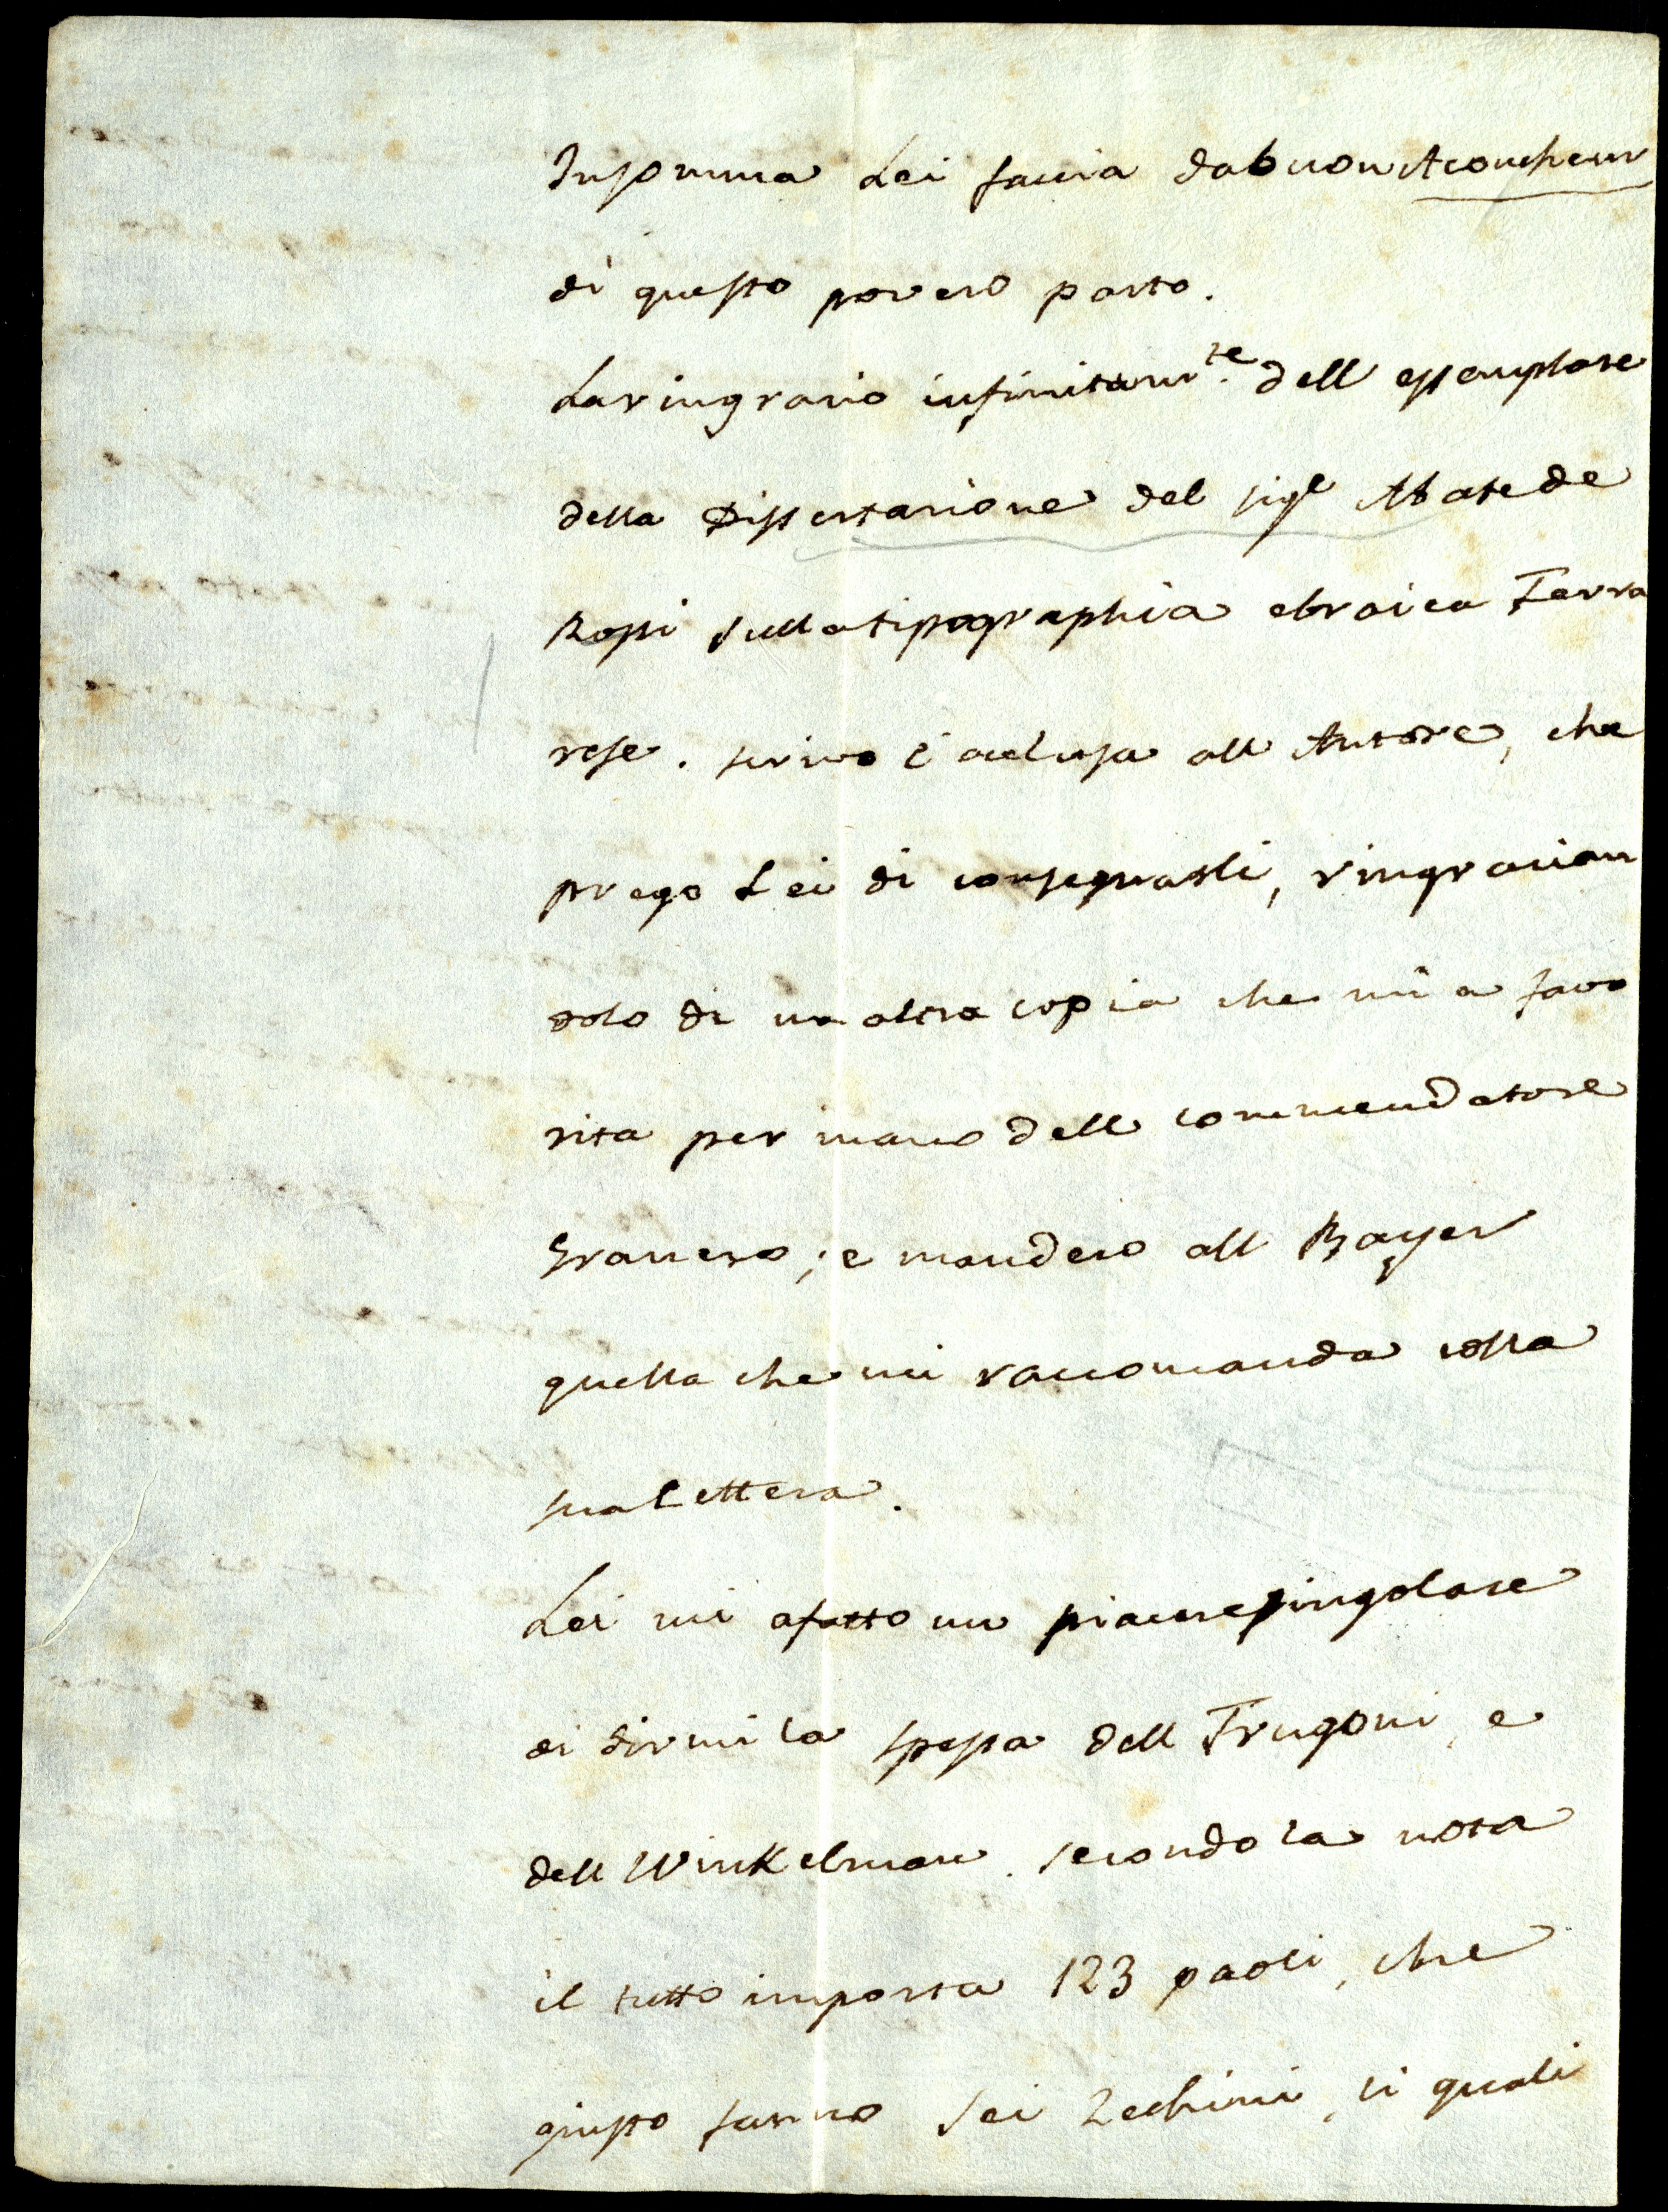 Insomma Lei faccia dabuon Acoucheur
di questo povero parto.
Laringrazio infinitam.te dell essemplare
della Dissertazione del sigr Abate de
Rossi sulla tipographia ebraica Ferra
rese. scrivo l'acclusa all Autore, che
prego Lei di consegnarli, ringrazian
dolo di un altra copia che mi a favo
rita per mano dell commendatore
Granero; e manderò all Bayer
quella che mi raccomanda colla
sua Lettera.
Lei mi a fatto un piacere singolare
di dirmi la spesa dell Frugoni, e
dell Winkelman. secondo la nota
il tutto importa 123 paoli, che
giusto fanno sei Zechini, li quali